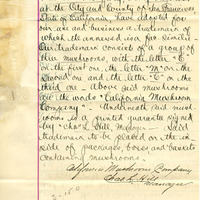 at the City and County of San Francisco
State of California, have adopted for
our use and business a trademark of
which the annexed is a fac simile.
Our trademark consist of a group of
blue mushrooms, with the letter "C"
on the first one, the letter "M" on the
second one and the letter "C" on the
third one. Above said mushrooms
are the words "California Mushroom
Company". Underneath said mush
rooms is a printed guarantee signed
by "Chas L. Hill, Manager". Said
trademark to be placed on the in
side of packages, boxes and barrels
containing mushrooms.
California Mushroom Company
Chas L. Hill
Manager